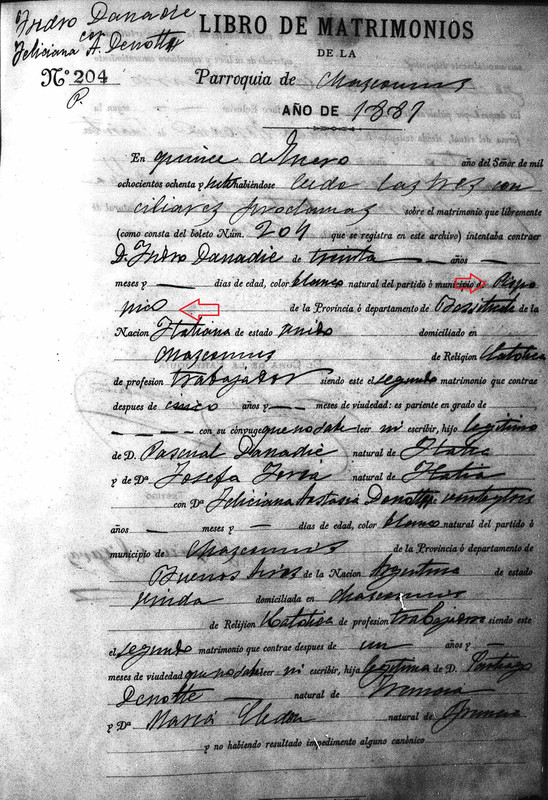 Isidro Danadie
con
Feliciana A. Denotte
LIBRO DE MATRIMONIOS
DE LA
Nº 204
Parroquia de Chascomus
P.
AÑO DE 1887
En quince de Enero año del Señor de mil
ochocientos ochenta y siete habiéndose leido las tres con
ciliares proclamas sobre el matrimonio que libremente
(como consta del boleto Núm. 204 que se registra en este archivo) intentaba contraer
D. Isidro Danadie de treinta años
meses y días de edad, color blanco natural del partido ó municipio de
de la Provincia ó departamento de de la
Nacion Italiana de estado viudo domiciliado en
Chascomus de Religion Catolica
de profesion trabajador siendo este el segundo matrimonio que contrae
despues de cinco años y meses de viudedad: es pariente en grado de
con su cónyuge que no sabe leer ni escribir, hijo legitimo
de D. Pascual Danadie natural de Italia
y de Dª Josefa natural de Italia
con Dª Feliciana Anastasia Denotte de veintiytres
años meses y días de edad, color blanco natural del partido ó
municipio de Chascomus de la Provincia ó departamento de
Buenos Aires de la Nacion Argentina de estado
viuda domiciliada en Chascomus
de Relijion Catolica de profesion trabajadora siendo este
el segundo matrimonio que contrae despues de un años y
meses de viudedad que no sabe leer ni escribir, hija legitima de D. Santiago
Denotte natural de Francia
y Dª Maria natural de Francia
y no habiendo resultado impedimento alguno canónico